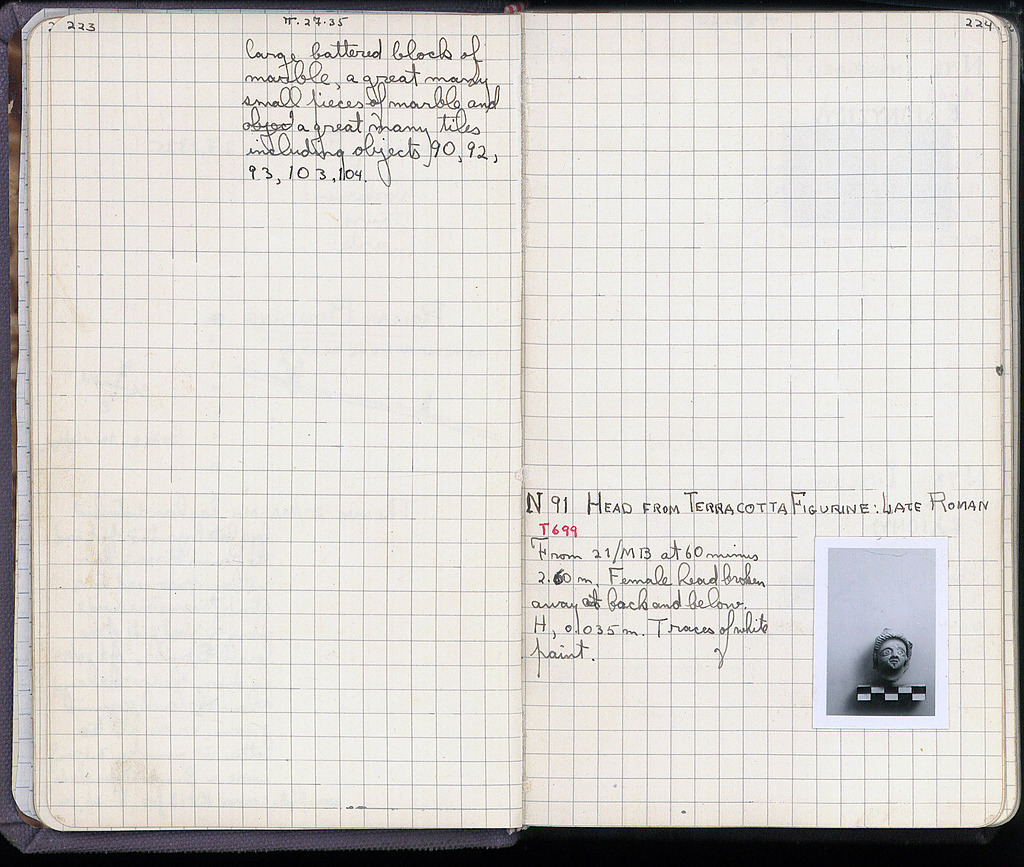 223
IV. 27.35
large battered block of
marble, a great many
small pieces of marble and
object a great many tiles
including objects 90, 92,
93, 103, 104.
224
N 91 HEAD FROM TERRACOTTA FIGURINE: LATE ROMAN
T699
From 21/MB at 60 minus
2.60 m. Female head broken
away at back and below.
H, 0.035 m. Traces of white
paint.